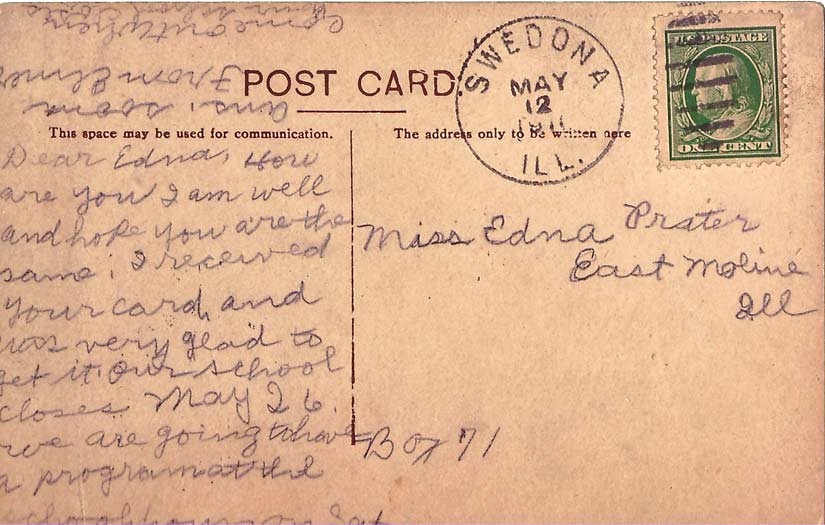 POST CARD
This space may be used for communication.
The address only to be written here
SWEDONA
MAY
12
1911
ILL.
U.S. POSTAGE
ONE CENT
Dear Edna, How
are you I am well
and hope you are the
same. I received
your card, and
was very glad to
get it. Our school
closes May 26.
we are going to have
a program at the
school house on Sat
ans. soon
From Elmer
Come out here
Miss Edna Prater
East Moline
Ill
Box 71